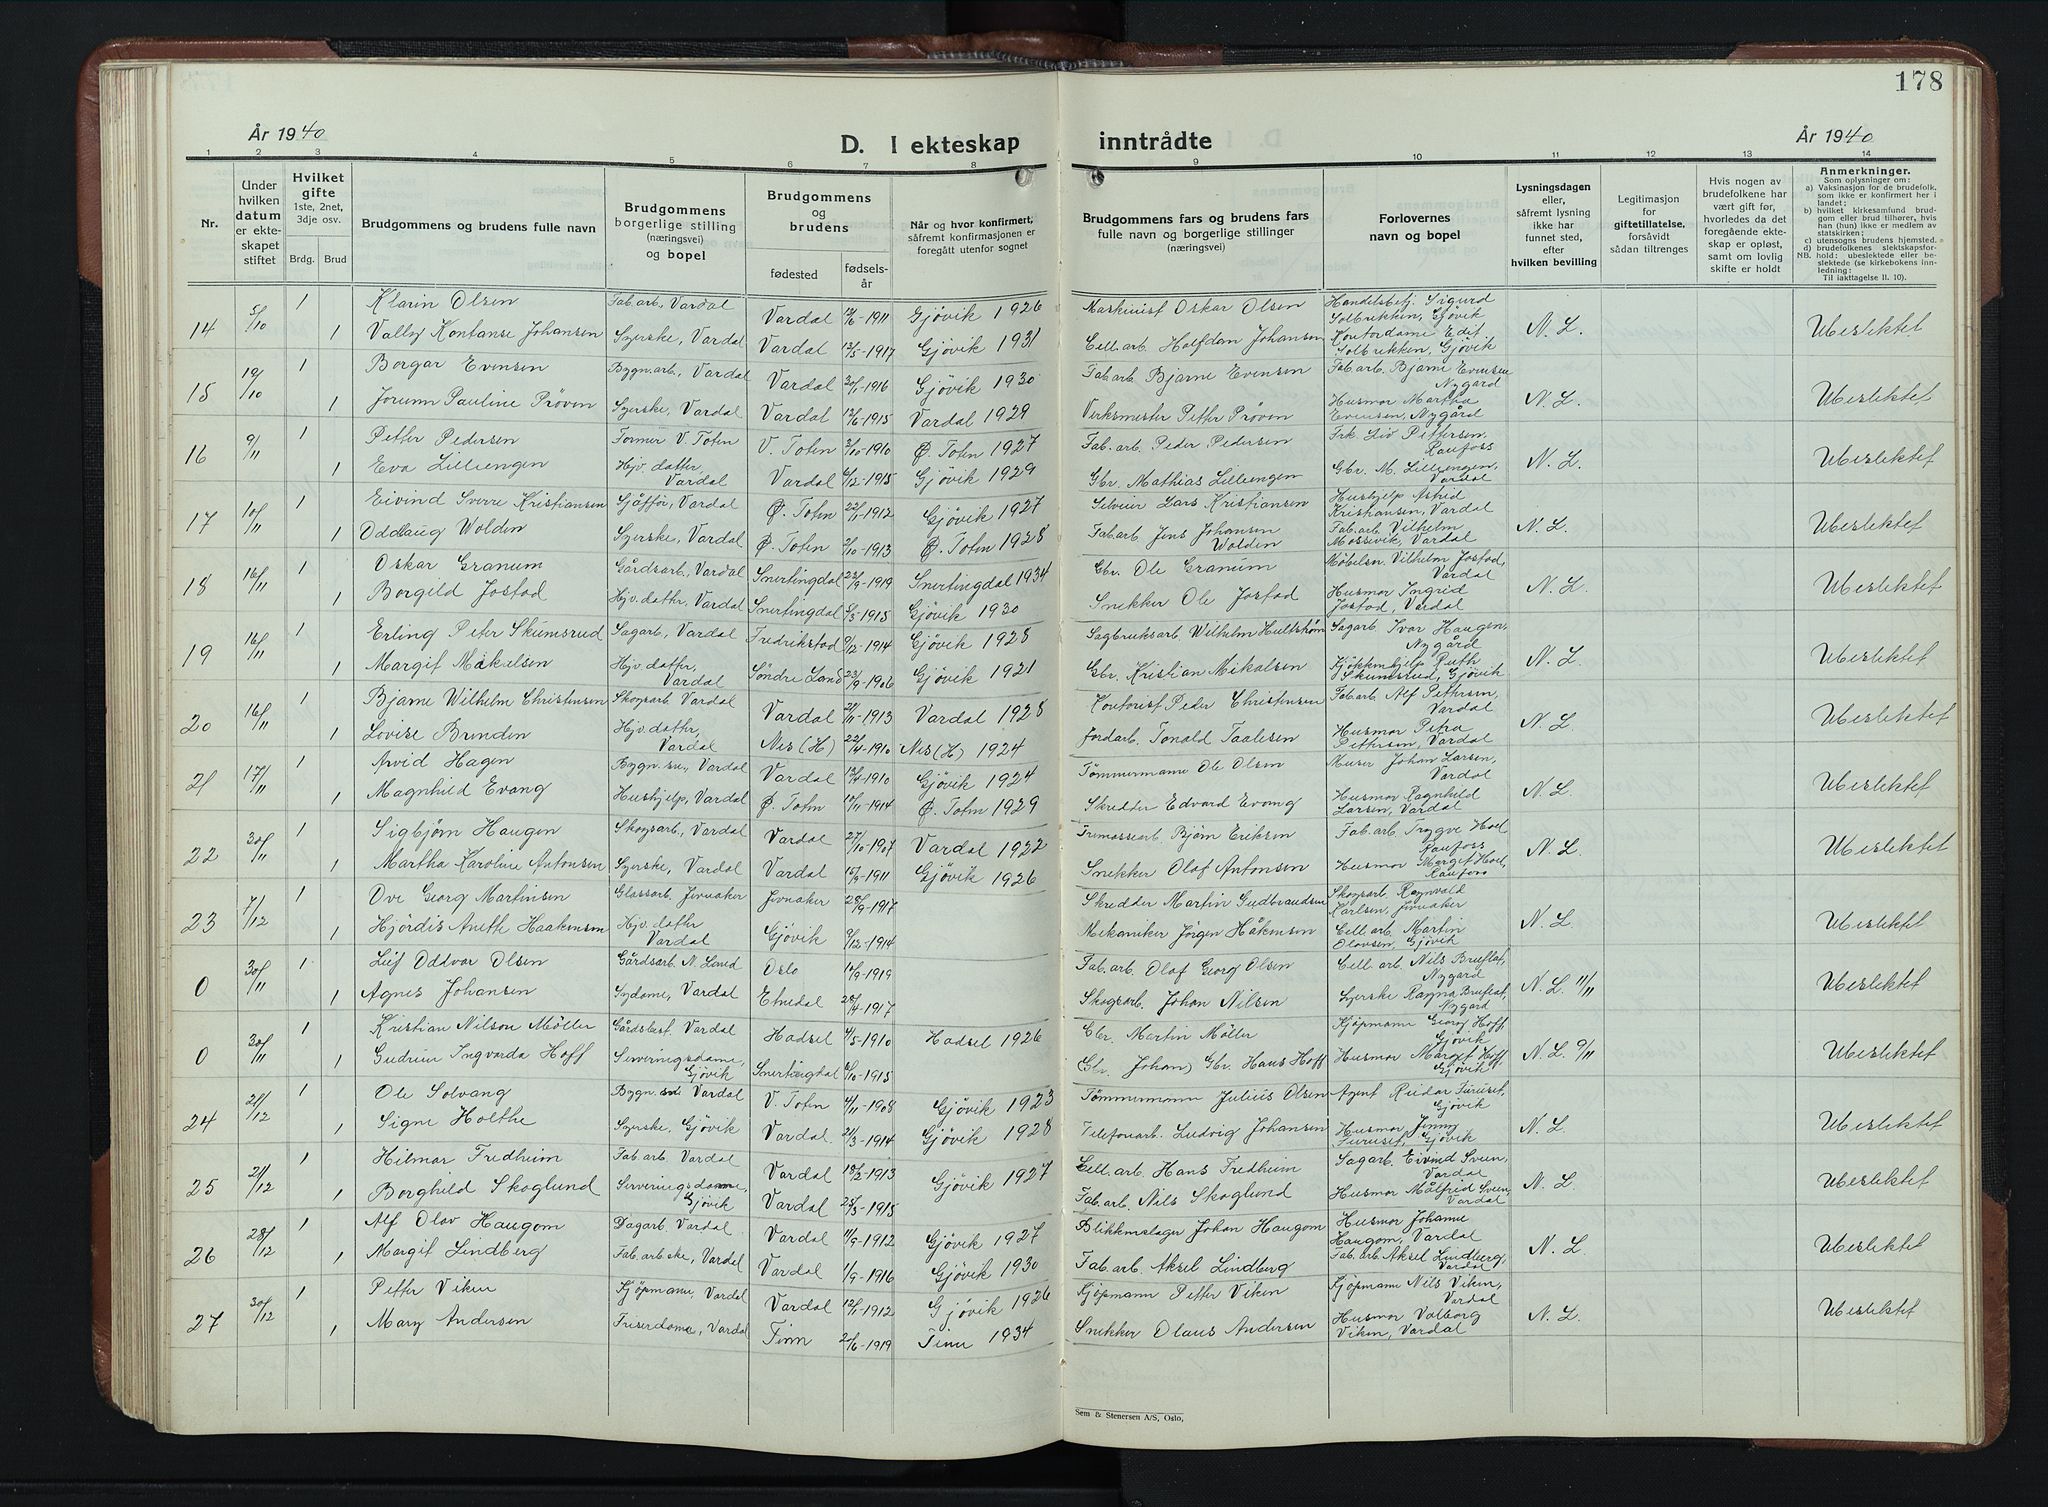 178
År 1940
D. I ekteskap inntrådte
År 1940
1 2 3 4 5 6 7 8 9 10 11 12 13 14
Nr.
Under hvilken datum er ekteskapet stiftet
Hvilket gifte 1ste, 2net, 3dje osv.
Brdg. Brud
Brudgommens og brudens fulle navn
Brudgommens borgerlige stilling (næringsvei) og bopel
Brudgommens og brudens
fødested
fødselsår
Når og hvor konfirmert, såfremt konfirmasjonen er foregått utenfor sognet
Brudgommens fars og brudens fars fulle navn og borgerlige stillinger (næringsvei)
Forlovernes navn og bopel
Lysningsdagen eller, såfremt lysning ikke har funnet sted, efter hvilken bevilling
Legitimasjon for giftetillatelse, forsåvidt sådan tiltrenges
Hvis nogen av brudefolkene har vært gift før, hvorledes da det foregående ekteskap er opløst, samt om lovlig skifte er holdt
Anmerkninger.
Som oplysninger om:
a) Vaksinasjon for de brudefolk, som ikke er konfirmert her i landet;
b) hvilket kirkesamfund brudgom eller brud tilhører, hvis han (hun) ikke er medlem av statskirken;
c) utensogns brudens hjemsted.
d) brudefolkenes slektskapsforhold: ubeslektede eller beslektede (se kirkebokens innledning:
NB. Til iakttagelse II. 10).
14 5/10 1 Klarin Olsen Fab.arb., Vardal Vardal 12/6-1911 Gjövik 1926 Maskinist Oskar Olsen Handelsbetj. Sigurd Solbrekken, Gjövik N. L. Ubeslektet
1 Vally Kontanse Johansen Syerske, Vardal Vardal 13/5-1917 Gjövik 1931 Cell.arb. Halfdan Johansen Kontordame Edit Solbrekken, Gjövik
15 19/10 1 Borgar Evensen Bygn.arb., Vardal Vardal 30/1-1916 Gjövik 1930 Fab.arb. Bjarne Evensen Fab.arb. Bjarne Evensen Nygard N. L. Ubeslektet
1 Jorunn Pauline Pröven Syerske, Vardal Vardal 12/6-1915 Vardal 1929 Verksmester Petter Pröven Husmor Martha Evensen, Nygård
16 9/11 1 Petter Pedersen Former V. Toten V. Toten 3/10-1910 Ø. Toten 1927 Fab.arb. Peder Pedersen Frk. Liv Pettersen, Raufoss N. L. Ubeslektet
1 Eva Lilleengen Hjv. datter, Vardal Vardal 6/12-1915 Gjövik 1929 Gbr. Mathias Lilleengen Gbr. M. Lilleengen, Vardal
17 10/11 1 Eivind Sverre Kristiansen Sjåför, Vardal Ø. Toten 22/11-1912 Gjövik 1927 Selveier Lars Kristiansen Hushjelp Astrid Kristiansen, Vardal N. L. Ubeslektet
1 Oddlaug Wolden Syerske, Vardal Ø. Toten 2/10-1913 Ø. Toten 1928 Fab.arb. Jens Johansen Wolden Fab.arb. Vilhelm Mossevik, Vardal
18 16/11 1 Oskar Granum Gårdsarb., Vardal Snertingdal 22/9-1919 Snertingdal 1934 Gbr. Ole Granum Möbelsn. Vilhelm Jostad, Vardal N. L. Ubeslektet
1 Borgild Jostad Hjv. datter, Vardal Snertingdal 6/5-1915 Gjövik 1930 Snekker Ole Jostad Husmor Ingrid Jostad, Vardal
19 16/11 1 Erling Peter Skumsrud Sagarb., Vardal Fredrikstad 9/12-1914 Gjövik 1928 Sagbruksarb. Wilhelm Hultström Sagarb. Ivar Haugen, Nygård N. L. Ubeslektet
1 Margit Mikalsen Hjv. datter, Vardal Söndre Land 23/9-1906 Gjövik 1921 Gbr. Kristian Mikalsen Kjökkenhjelp Ruth Skumsrud, Gjövik
20 16/11 1 Bjarne Wilhelm Christensen Skogsarb. Vardal Vardal 21/11-1913 Vardal 1928 Kontorist Peder Christensen Fab.arb. Alf Pettersen, Vardal N. L. Ubeslektet
1 Lovise Brenden Hjv. datter, Vardal Nes (H) 22/4-1910 Nes (H) 1924 Jordarb. Tonald Taalesen Husmor Petra Pettersen, Vardal
21 17/11 1 Arvid Hagen Bygn.sn., Vardal Vardal 12/4-1910 Gjövik 1924 Tömmermann Ole Olsen Murer Johan Larsen, Vardal N. L. Ubeslektet
1 Magnhild Evang Hushjelp, Vardal Ø. Toten 10/11-1914 Ø. Toten 1929 Skredder Edvard Evang Husmor Ragnhild Larsen, Vardal
22 30/11 1 Sigbjörn Haugen Skogsarb., Vardal Vardal 27/10-1907 Vardal 1922 Tremassearb. Bjørn Eriksen Fab.arb. Trygve Hoel Raufoss N. L. Ubeslektet
1 Martha Karoline Antonsen Syerske, Vardal Vardal 15/9-1911 Gjövik 1926 Snekker Olaf Antonsen Husmor Margit Hoel, Raufoss
23 7/12 1 Ove Georg Martinsen Glassarb. Jevnaker Jevnaker 28/9-1917 Skredder Martin Gudbrandsen Skogsarb. Ragnvald Karlsen, Jevnaker N. L. Ubeslektet
1 Hjördis Anette Haakensen Hjv. datter Vardal Gjövik 9/12-1914 Mekaniker Jörgen Håkensen Cell.arb. Martin Olavsen, Gjövik
0 30/11 1 Leif Oddvar Olsen Gårdsarb. N. Land Oslo 10/9-1919 Fab.arb. Olaf Georg Olsen Cell.arb. Nils Bruflat, Nygard N. L. 11/11 Ubeslektet
1 Agnes Johansen Sydame, Vardal Etnedal 28/4-1917 Skogsarb. Johan Nilsen Syerske Ragna Bruflat, Nygard
0 30/11 1 Kristian Nilson Möller Gårdsbest. Vardal Hadsel 4/5-1910 Hadsel 1926 Gbr. Martin Möller Kjöpmann Georg Hoff, Gjövik N. L. 9/11 Ubeslektet
1 Gudrun Ingvarda Hoff Serveringsdame, Gjövik Snertingdal 6/10-1915 Gbr. (Johan) Gbr. Hans Hoff Husmor Margit Hoff, Gjövik
24 21/12 1 Ole Solvang Bygn.sn. Vardal V. Toten 4/11-1908 Gjövik 1923 Tömmermann Julius Olsen Agent Reidar Furuset, Gjövik N. L. Ubeslektet
1 Signe Holthe Syerske, Gjövik Vardal 21/3-1914 Gjövik 1928 Telefonarb. Ludvig Johansen Husmor Jenny Furuset, Gjövik
25 21/12 1 Hilmar Fredheim Fab.arb. Vardal Vardal 18/2-1913 Gjövik 1927 Cell.arb. Hans Fredheim Sagarb. Eivind Sveen, Vardal N. L. Ubeslektet
1 Borghild Skoglund Serveringsdame, Gjövik Vardal 25/3-1915 Fab.arb. Nils Skoglund Husmor Målfrid Sveen, Vardal
26 28/12 1 Alf Olav Haugom Dagarb. Vardal Vardal 11/9-1912 Gjövik 1927 Blikkenslager Johan Haugom Husmor Johanne Haugom, Vardal N. L. Ubeslektet
1 Margit Lindberg Fab.arb.ske, Vardal Vardal 1/9-1916 Gjövik 1930 Fab.arb. Aksel Lindberg Fab.arb. Aksel Lindberg, Vardal
27 30/12 1 Petter Viken Kjöpmann, Vardal Vardal 12/1-1912 Gjövik 1926 Kjöpmann Petter Viken Kjöpmann Nils Viken, Vardal N. L. Ubeslektet
1 Mary Andersen Friserdame, Vardal Tinn 21/6-1919 Tinn 1934 Snekker Olaus Andersen Husmor Valborg Viken, Vardal
Sem & Stenersen A/S, Oslo,